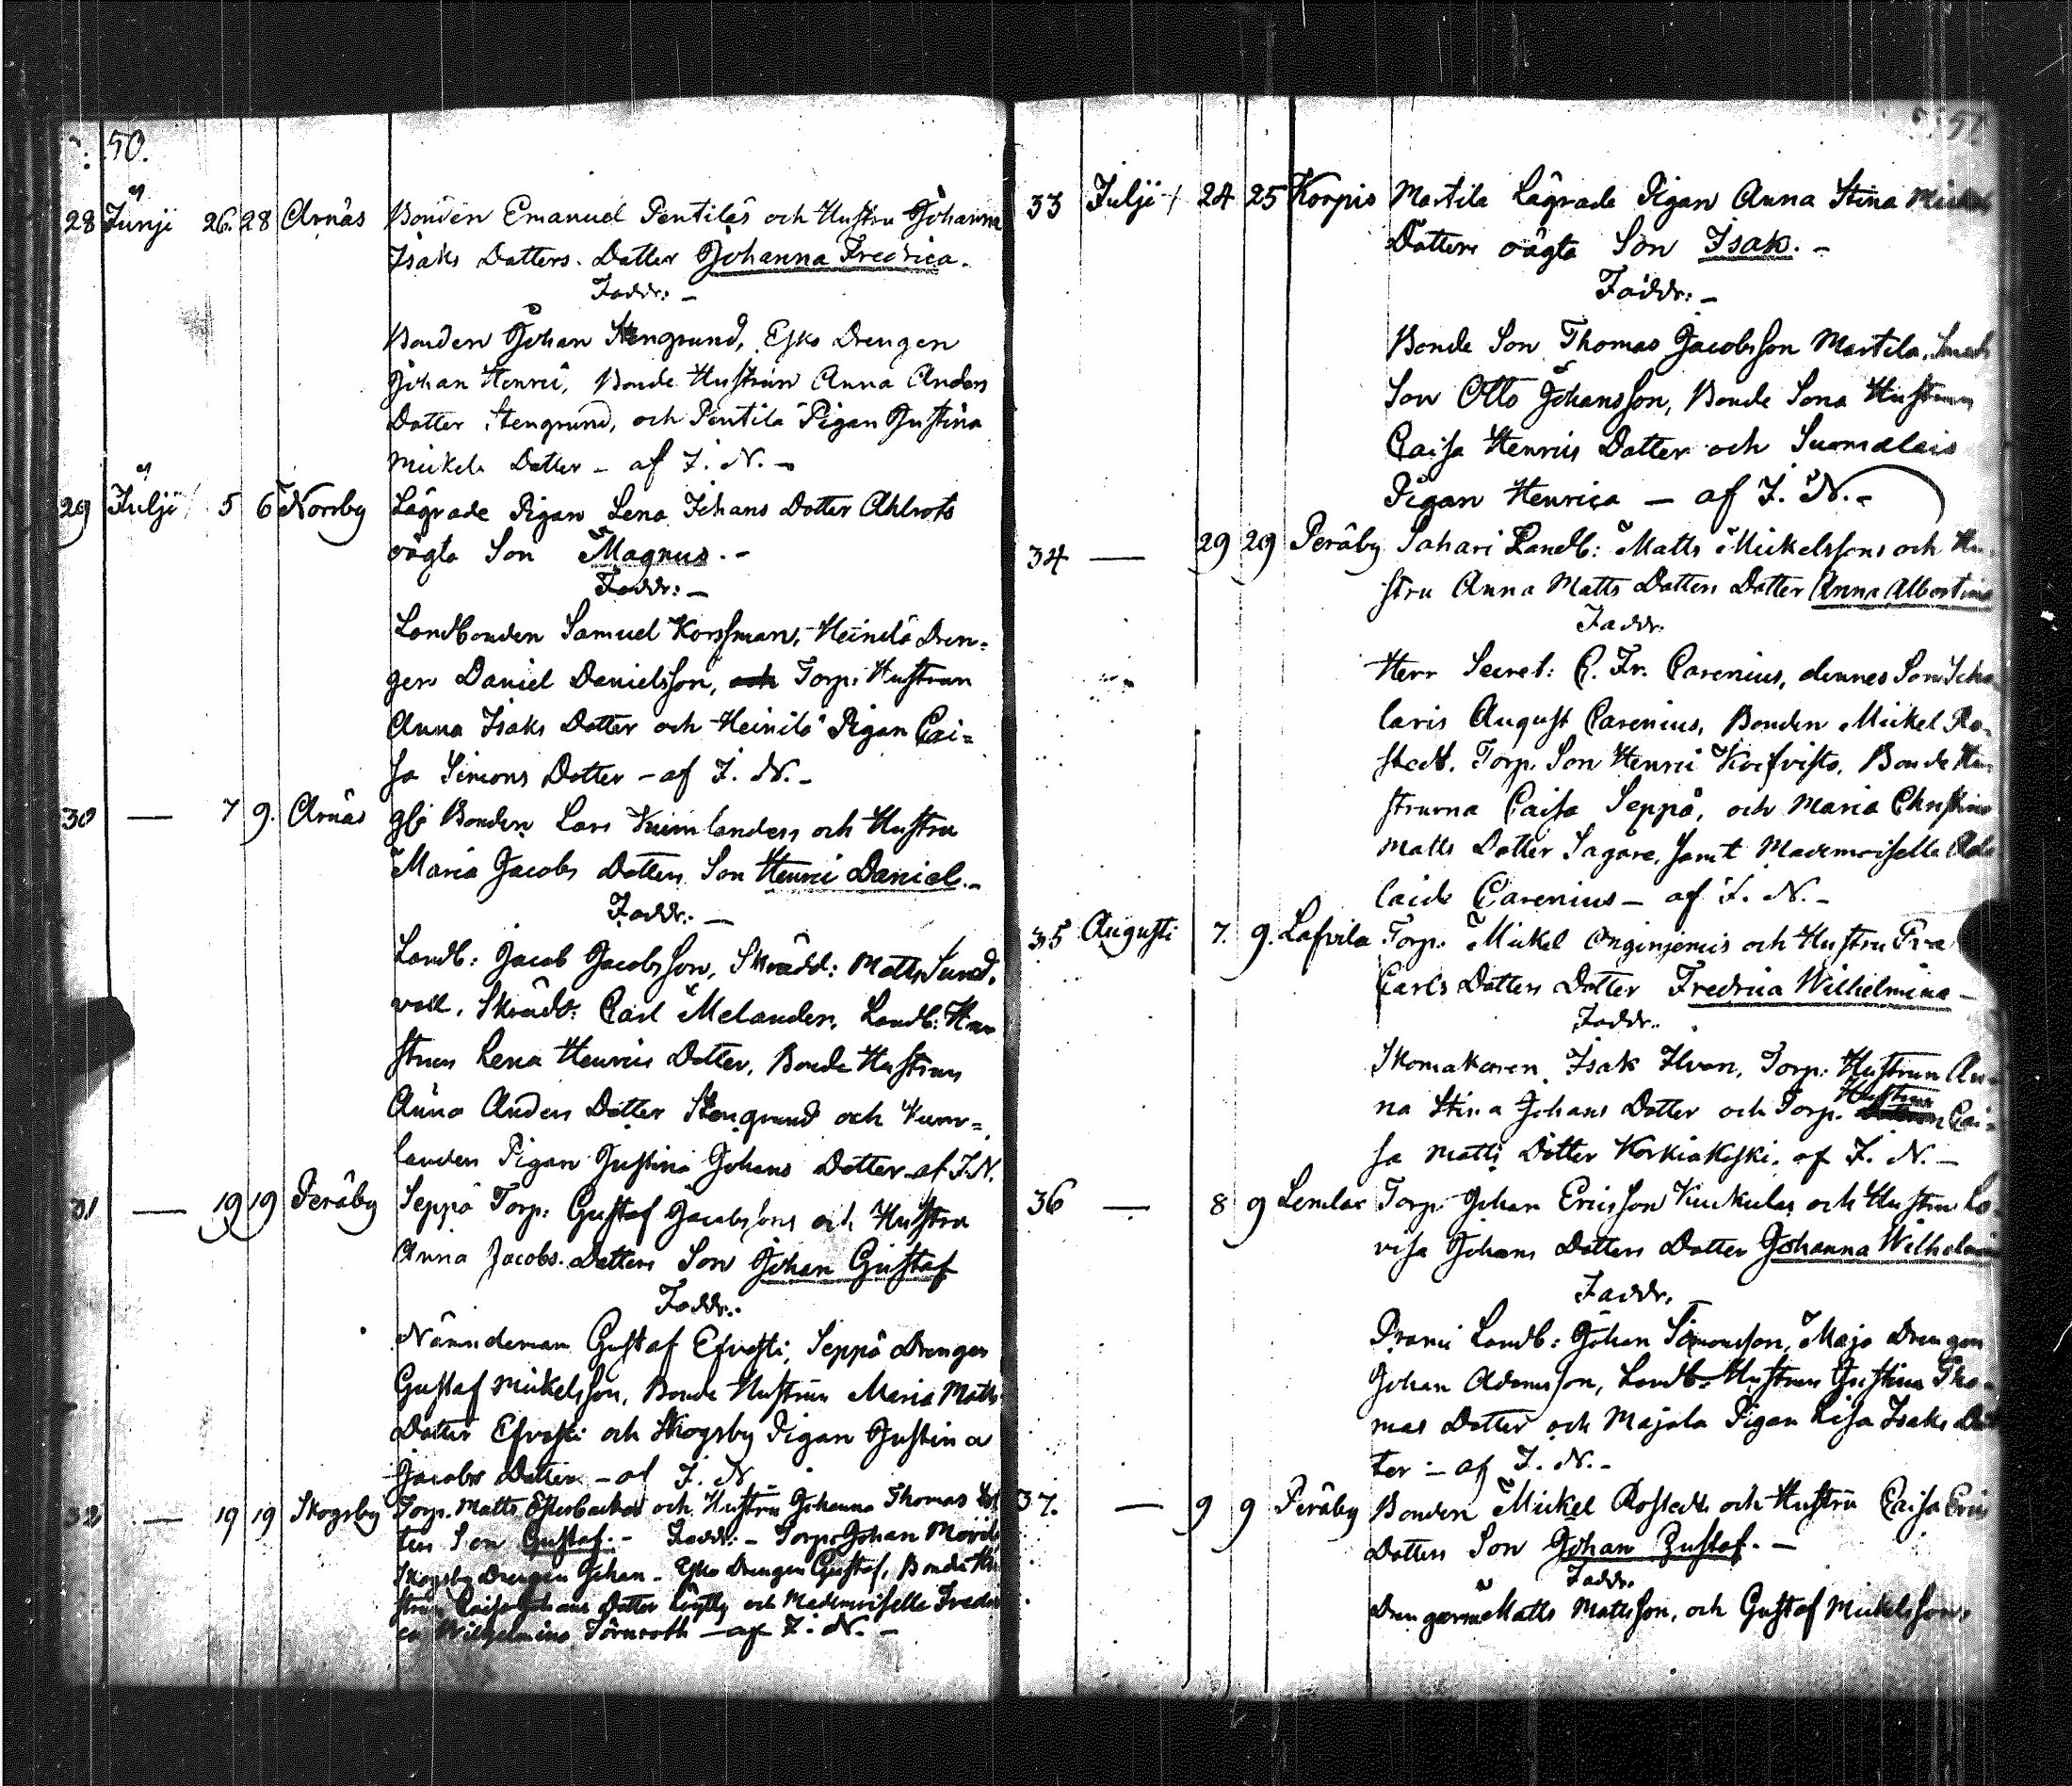 50.
28 Junji 26. 28 Arnäs Bonden Emanuel Pentiläs och Hustru Johanna
Isaks Datters. Datter Johanna Fredrica.
Faddr: –
Bonden Johan Stengrund, Esko Drengen
Johan Henrici, Bonde Hustrun Anna Anders
Datter Stengrund, och Pentilä Pigan Justina
Mickels Datter – af I. N. –
29 Julji 5 6 Norrby Lägrade Pigan Lena Johans Dotter Ahlrots
oägta Son Magnus. –
Faddr: –
Landbonden Samuel Korssman, Heinilä Dren=
gen Daniel Danielsson, Torp: Hustrun
Anna Isaks Dotter och Heinilä Pigan Cai=
sa Simons Dotter – af I. N. –
30 — 7 9. Arnäs Bonden Lars Kumlanders och Hustru
Maria Jacobs Dotters Son Henric Daniel. –
Faddr: –
Landb: Jacob Jacobsson, Skrädd: Matts Sund,
vall, Skrädd: Carl Melander, Landb: Hu
strun Lena Henrics Dotter, Bonde Hustrun
Anna Anders Dotter Stengrund och Kum=
landers Pigan Justina Johans Dotter – af I. N.
31 — 19 19 Peräby Seppä Torp: Gustaf Jacobssons och Hustru
Anna Jacobs Dotters Son Johan Gustaf
Faddr:
Nämndeman Gustaf Efvasti, Seppä Drengen
Gustaf Mickelsson, Bonde Hustrun Maria Matts
Dotter Efvasti och Skogsby Pigan Justina
Jacobs Dotter – af I. N. –
32 — 19 19 Skogsby Torp. Matts Österbackas och Hustru Johanna Thomas
ters Son Gustaf. – Faddr: – Torp: Johan
Skogsby Drengen Johan – Esko Drengen Gustaf, Bonde Hu
strun Caisa Johans Dotter och Mademoiselle Fredri
ca Wilhelmina Törnroth – af I. N. –
51
33 Julji 24 25 Korpis Martila Lägrade Pigan Anna Stina Mickels
Dotters oägta Son Isak. –
Faddr: –
Bonde Son Thomas Jacobsson Martila,
Son Otto Johansson, Bonde Sons Hustrun
Caisa Henrics Dotter och Suomalais
Pigan Henrica – af I. N. –
34 — 29 29 Peräby Sahari Landb: Matts Mickelssons och Hu
stru Anna Matts Dotters Dotter Anna Albertina
Faddr.
Herr Secret: C. Fr. Carenius, dennes Son Scho
laris August Carenius, Bonden Mickel Ro-
stedt, Torp. Son Henric Koifvisto, Bonde Hu
strurna Caisa Seppä, och Maria Christina
Matts Dotter Sagare, samt Mademoiselle Ade
laide Carenius – af I. N. –
35 Augusti 7. 9. Lafvila Torp: Mickel och Hustru Eva
Carls Dotters Dotter Fredrica Wilhelmina –
Faddr.
Skomakaren Isak Ilvon, Torp: Hustrun An-
na Stina Johans Dotter och Torp. Hustrun Cai=
sa Matts Dotter Korkiakoski. af I. N. –
36 — 8 9 Lemlax Torp: Johan Ericsson Kuckulas och Hustru Lo-
visa Johans Dotters Dotter Johanna Wilhelmina
Faddr.
Prami Landb: Johan Simonsson, Majo Drengen
Johan Adamsson, Landb: Hustrun Justina Tho-
mas Dotter och Majala Pigan Lisa Isaks Dot
ter – af I. N. –
37. — 9 9 Peräby Bonden Mickel Rostedts och Hustru Caisa Erics
Dotters Son Johan Gustaf. –
Faddr.
Drengarne Matts Mattsson, och Gustaf Mickelsson,